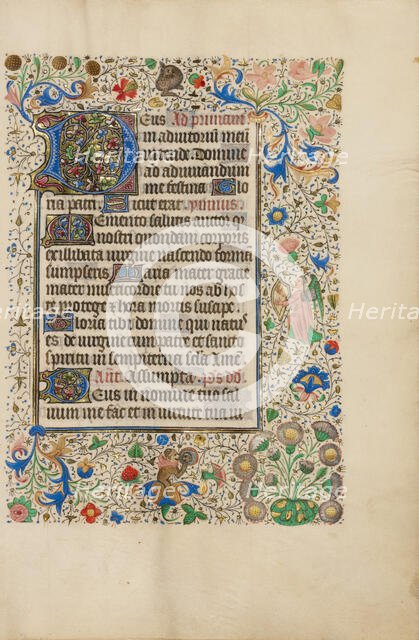 Deus Ad primam
in adiutorium meū
intende. Domine
ad adiuuandum
me festina Glo
ria patri Sicut erat. ymnus.
Memento salutis auctor q̄
nostri quondam corporis
ex illibata uirgine nascendo formā
sumpseris Maria mater gratie
mater misericordie tu nos ab hos
te protege et hora mortis suscipe
Gloria tibi domine qui natus
es de uirgine cum patre et sancto
spiritu in sempiterna secla Amē.
Añ. Assumpta. ps. dd.
Deus in nomine tuo sal
uum me fac et in uirtute tua iu